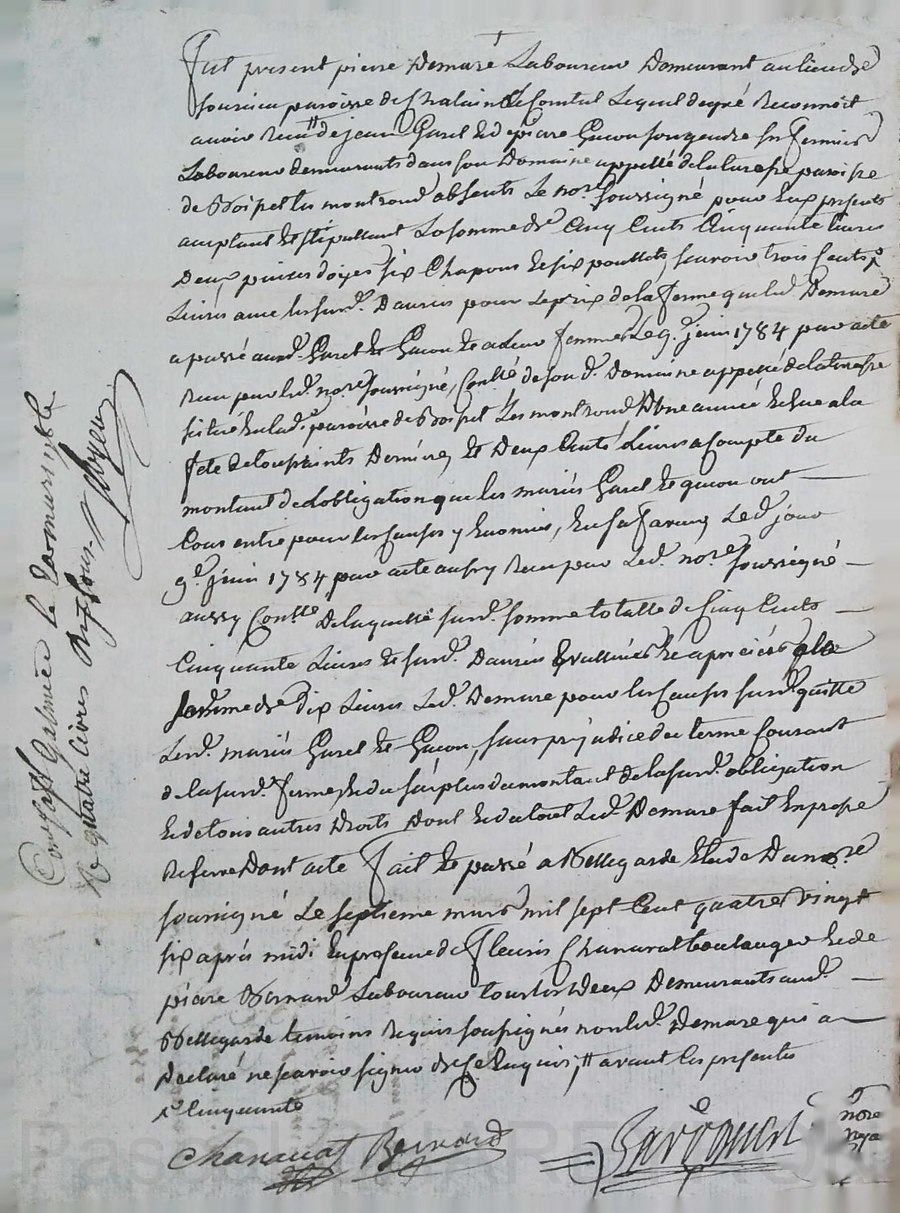 Fut present pierre Demare Laboureur Demeurant au lieu de
paroisse de Chalain Le Comtal Lequel de gré Reconnoit
avoir Receu de jean Garel et de piere Gucon son gendre ses fermiers
Laboureurs demeurants dans son Domaine appellé de la paroisse
de Boisset les montrond absents Le nore. soussigné pour Eux présents
acceptant et stipullant La somme de Cinq Cents Cinquante Livres
Deux paires d'oyes six Chapons et six poullets, scavoir trois Cents
Livres avec les surd. Danrées pour Le prix de la ferme que led. Demare
a passé auxd. Garel et Gucon et a Leur femmes Le 9e. juin 1784 par acte
Receu par led. nore. soussigné, Conllé de son d. Domaine appellé de la
situé En lad. paroisse de Boisset Les montrond D'une année Echue a la
fete de toussaints Derniere, et Deux Cents Livres a Compte du
montant de L'obligation que les mariés Garel et gucon ont
Tous entre pour les causes y Enoncées, En sa faveur Led. jour
9e. juin 1784 par acte aussy Receu par Led. nore. soussigné
aussy Conllé. De laquelle surd. somme totalle de Cinq Cents
Cinquante Livres et surd. Danrées Evalluées et apreciées a la
somme de dix Livres Led. Demare pour les Causes surd. quitte
Lesd. mariés Garel et Gucon, sans préjudice du terme Courant
de la surd. ferme, et du surplus du montant de la surd. obligation
et de tous autres Droits Dont et du tout Led. Demare fait Expresse
Reserve Dont acte Fait et passé a Bellegarde Etude Du nore
soussigné Le septieme mars mil sept Cent quatre vingt
six après midi En presence de Fleuris Chanavat boulanger et de
piere Bernard Laboureur tous les deux Demeurants aud.
Bellegarde temoins Requis soussignés non led. Demare qui a
Declaré ne scavoir signer de Ce Enquis, avant les presentes
Cinquante
Chanavat Bernard
nore
Galmier le
Rx quatre livres Dix sous